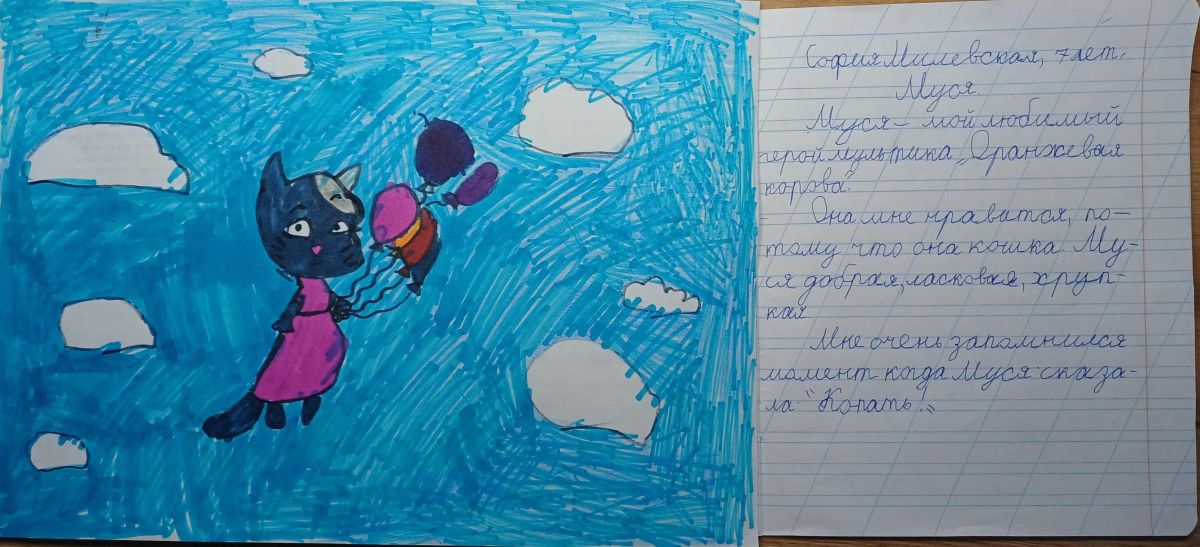 София Милевская, 7 лет.
Муся.
Муся - мой любимый
герой мультика „Оранжевая
корова".
Она мне нравится, по-
тому что она кошка. Му-
ся добрая, ласковая, хруп-
кая
Мне очень запомнился
момент когда Муся сказа-
ла "Копать!"